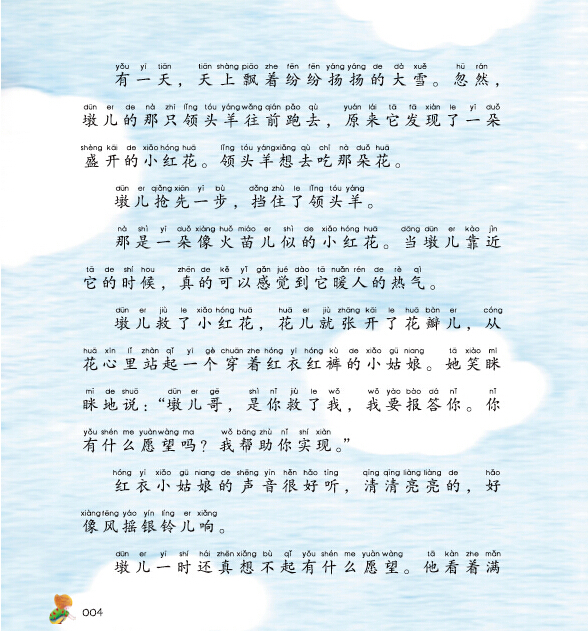 yǒu yì tiān tiān shàng piāo zhe fēn fēn yáng yáng de dà xuě hū rán
有一天，天上飘着纷纷扬扬的大雪。忽然，
dūn er de nà zhī lǐng tóu yáng wǎng qián pǎo qù yuán lái tā fā xiàn le yì duǒ
墩儿的那只领头羊往前跑去，原来它发现了一朵
shèng kāi de xiǎo hóng huā lǐng tóu yáng xiǎng qù chī nà duǒ huā
盛开的小红花。领头羊想去吃那朵花。
dūn er qiǎng xiān yí bù dǎng zhù le lǐng tóu yáng
墩儿抢先一步，挡住了领头羊。
nà shì yì duǒ xiàng huǒ miáo er shì de xiǎo hóng huā dāng dūn er kào jìn
那是一朵像火苗儿似的小红花。当墩儿靠近
tā de shí hou zhēn de kě yǐ gǎn jué dào tā nuǎn rén de rè qì
它的时候，真的可以感觉到它暖人的热气。
dūn er jiù le xiǎo hóng huā huā er jiù zhāng kāi le huā bàn er cóng
墩儿救了小红花，花儿就张开了花瓣儿，从
huā xīn lǐ zhàn qǐ yí gè chuān zhe hóng yī hóng kù de xiǎo gū niang tā xiào mī
花心里站起一个穿着红衣红裤的小姑娘。她笑眯
mī de shuō dūn er gē shì nǐ jiù le wǒ wǒ yào bào dá nǐ nǐ
眯地说：“墩儿哥，是你救了我，我要报答你。你
yǒu shén me yuàn wàng ma wǒ bāng zhù nǐ shí xiàn
有什么愿望吗？我帮助你实现。”
hóng yī xiǎo gū niang de shēng yīn hěn hǎo tīng qīng qīng liàng liàng de hǎo
红衣小姑娘的声音很好听，清清亮亮的，好
xiàng fēng yáo yín líng er xiǎng
像风摇银铃儿响。
dūn er yì shí hái zhēn xiǎng bù qǐ yǒu shén me yuàn wàng tā kàn zhe mǎn
墩儿一时还真想不起有什么愿望。他看着满
004